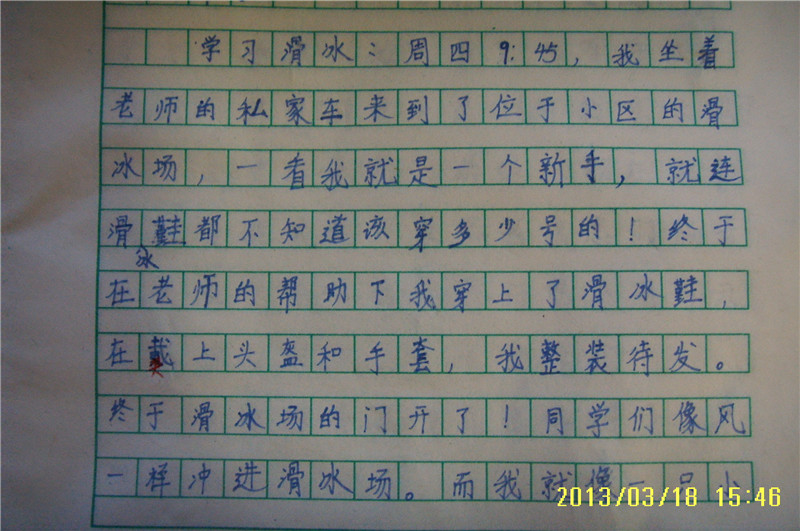 学习滑冰：周四9:45，我坐着
老师的私家车来到了位于小区的滑
冰场，一看我就是一个新手，就连
滑冰鞋都不知道该穿多少号的！终于
在老师的帮助下我穿上了滑冰鞋，
在戴上头盔和手套，我整装待发。
终于滑冰场的门开了！同学们像风
一样冲进滑冰场。而我就像一只小
2013/03/18 15:46